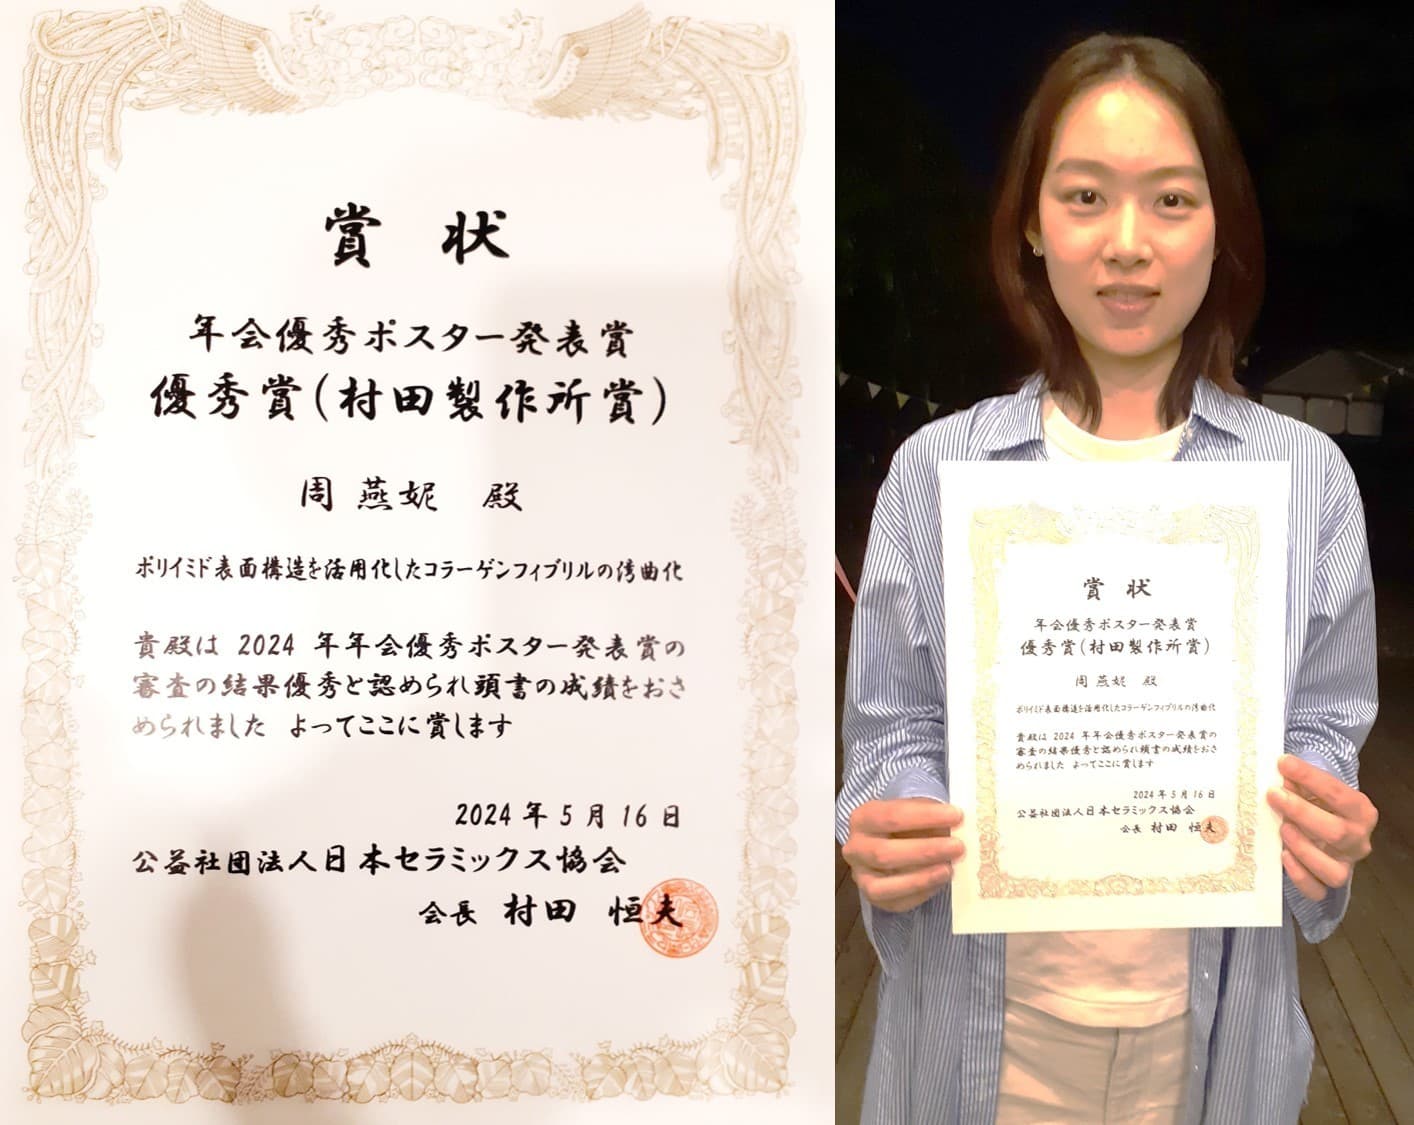 賞 状
年会優秀ポスター発表賞
優秀賞(村田製作所賞)
周 燕妮 殿
ポリイミド表面構造を活用化したコラーゲンフィブリルの湾曲化
貴殿は 2024 年年会優秀ポスター発表賞の
審査の結果優秀と認められ頭書の成績をおさ
められました よってここに賞します
2024 年 5 月 16 日
公益社団法人日本セラミックス協会
会長 村田 恒夫
賞 状
年会優秀ポスター発表賞
優秀賞(村田製作所賞)
周 燕妮 殿
ポリイミド表面構造を活用化したコラーゲンフィブリルの湾曲化
貴殿は 2024 年年会優秀ポスター発表賞の
審査の結果優秀と認められ頭書の成績をおさ
められました よってここに賞します
2024 年 5 月 16 日
公益社団法人日本セラミックス協会
会長 村田 恒夫